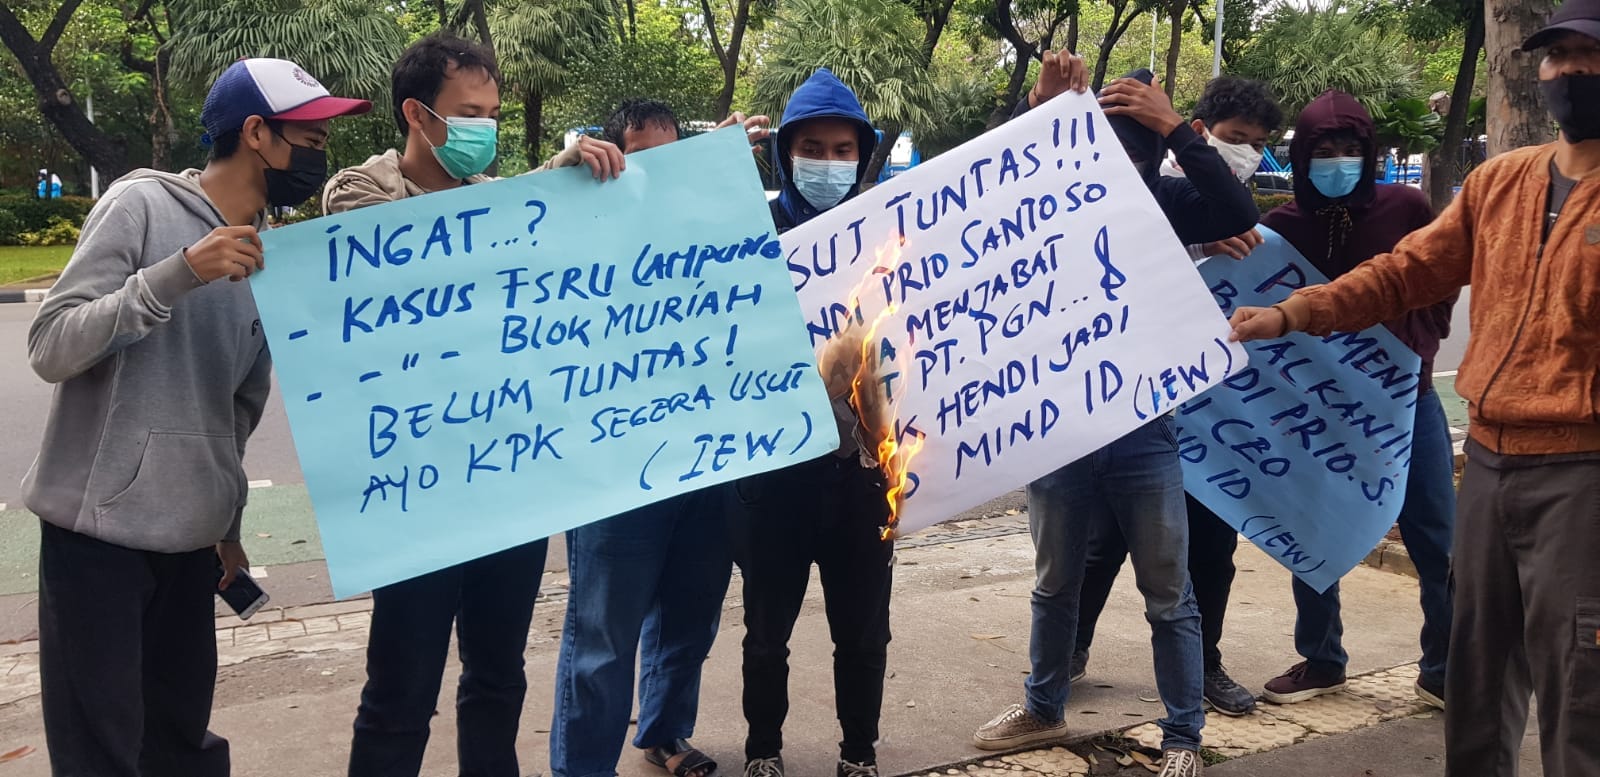 İNGAT...?
- KASUS FSRU LAMPUNG
- - " - BLOK MURIAH
BELUM TUNTAS!
AYO KPK SEGERA USUT
(IEW)
SUT TUNTAS!!!
NDI PRIO SANTOSO
A MENJABAT
T PT. PGN... &
K HENDI JADI
MIND ID (IEW)
MENT
ALKAN!!!
DI PRIO. S.
CEO
ND ID (IEW)